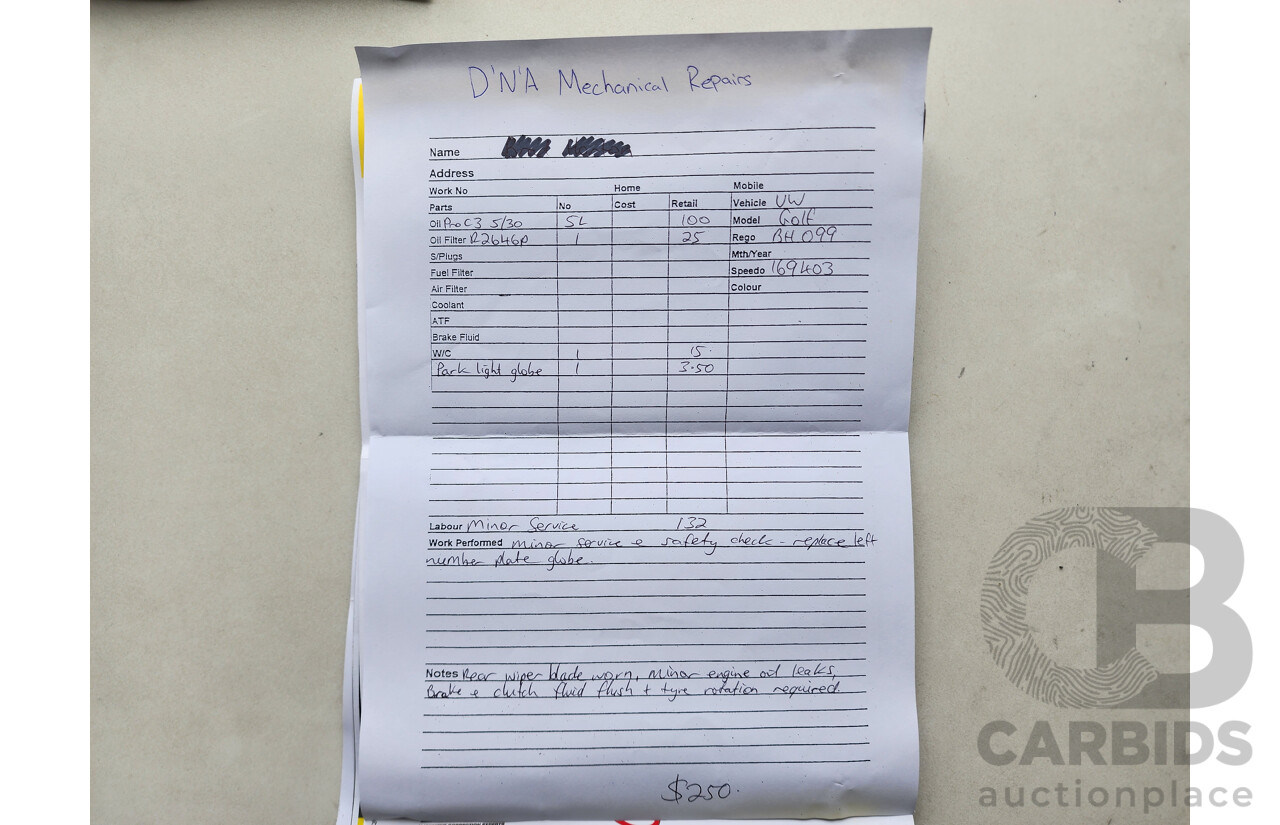 D'N'A Mechanical Repairs
Name
Address
Work No Home Mobile
Parts No Cost Retail Vehicle VW
Oil Pro C3 5/30 5L 100 Model Golf
Oil Filter R2646P 1 25 Rego BH 099
S/Plugs Mth/Year
Fuel Filter Speedo 169403
Air Filter Colour
Coolant
ATF
Brake Fluid
W/C 1 15.
Park light globe 1 3.50
Labour Minor Service 132
Work Performed minor service & safety check - replace left
number plate globe.
Notes Rear wiper blade worn, minor engine oil leaks,
Brake & clutch fluid flush + tyre rotation required.
$250.
CB
CARBIDS
auctionplace